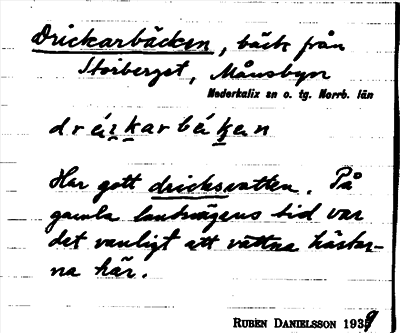 Drickarbäcken, bäck från
Storberget, Månsbyn
Nederkalix sn o. tg. Norrb. län
Har gott dricksvatten. På
gamla landsvägens tid var
det vanligt att vattna hästar-
na här.
RUBEN DANIELSSON 1939